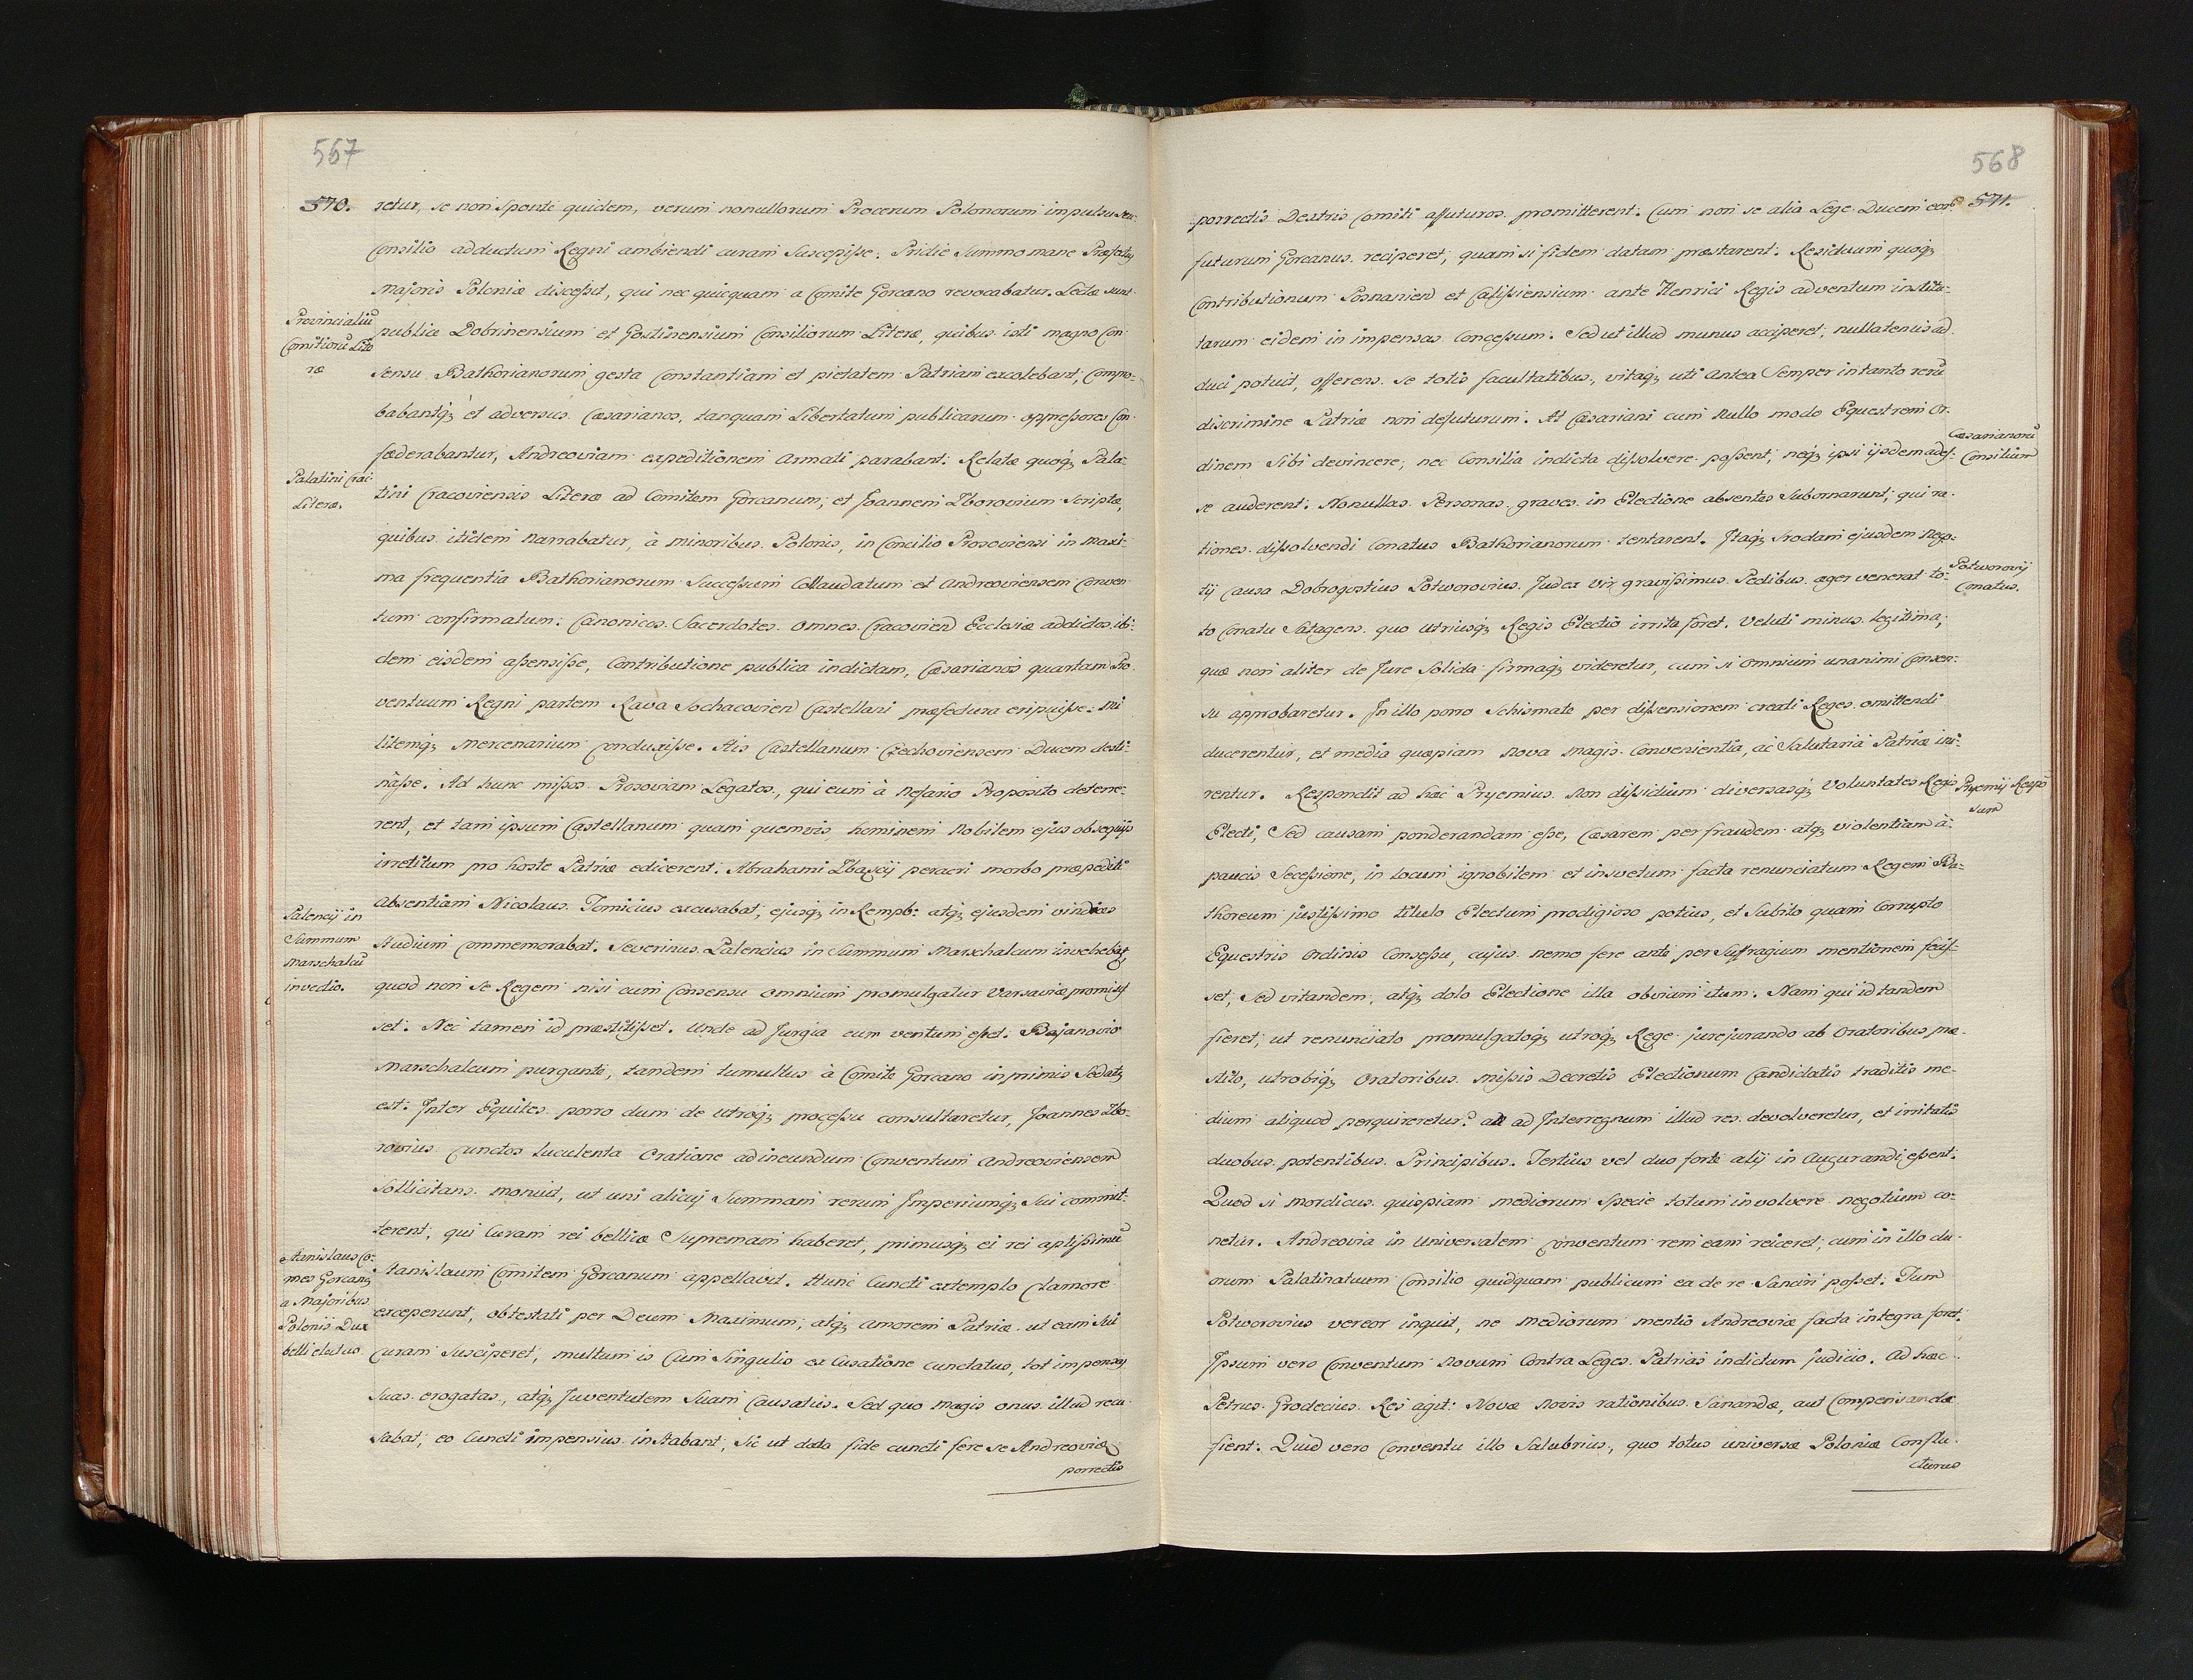 567
570.
retur, se non sponte quidem, verum nonullorum Procerum Polonorum impulsu seu
Consilio adductum Regni ambiendi curam suscepisse. Pridie summo mane Præfatq
majoris Poloniæ discessit, qui nec quicquam a Comite Gorcano revocabatur. Lectæ sunt
Provincialiū
Comitiorū Lite
ræ
publice Dobrinensium et Gostinensium Consiliorum Literæ, quibus isti magno Con
sensu Bathorianorum gesta Constantiam et pietatem Patriam excolebant, Compro-
babantq; et adversus Cæsarianos, tanquam Libertatum publicarum oppressores Con-
fæderabantur, Andreoviam expeditionem Armati parabant. Relatæ quoq; Pala-
Palatini Crac:
Literæ.
tini Cracoviensis Literæ ad Comitem Gorcanum, et Joannem Zborovium Scriptæ,
quibus itidem narrabatur, à minoribus Polonis, in Concilio Prosoviensi in maxi-
ma frequentia Bathorianorum Successum Collaudatum et Andreoviensem Conven
tum confirmatum: Canonicos Sacerdotes omnes Cracovien Ecclesiæ addictos ibi-
dem eisdem assensisse, Contributione publica indictam, Cæsarianos quantam Pro
ventuum Regni partem Rava Sochacovien Castellani præfectura eripuisse: Mi
litemq; mercenarium Conduxisse. His Castellanum Czechoviensem Ducem desti-
nasse. Ad hunc missos Prosoviam Legatos, qui eum à nefario Proposito deterre-
rent, et tam ipsum Castellanum quam quemvis hominem Nobilem ejus obsequijs
irretitum pro hoste Patriæ edicerent. Abrahami Zbascij peracri morbo præpediti
Absentiam Nicolaus Tomicius excusabat, ejusq; in Rempb: atq; ejusdem vindices
Palencij in
Summum
Marschalcū
invectio.
studium Commemorabat. Severinus Palencius in Summum Marschalcum invehebat
quod non se Regem nisi cum Consensu omnium promulgatur Varsaviæ promisis
set. Nec tamen id præstitisset. Unde ad Jurgia cum ventum esset. Bojanovio
Marschalcum purgante, tandem tumultus à Comite Gorcano inprimis Sedatq
est. Inter Equites porro dum de utroq; processu consultaretur, Joannes Zbo-
rovius Cunctos luculenta Oratione ad ineundum Conventum Andreoviensem
Sollicitans monuit, ut uni alicuj Summam rerum Imperiumq; sui commit-
terent, qui Curam rei bellicæ Supremam haberet, primusq; ei rei aptissimū
Stanislaus Co-
mes Gorcanq
a Majoribus
Polonis Dux
belli electus.
Stanislaum Comitem Gorcanum appellavit. Hunc Cuncti extemplo Clamore
exceperunt, obtestati per Deum Maximum, atq; amorem Patriæ ut eam sui
Curam Susciperet, multum is Cum Singulis ex Cusatione cunctatus, tot impensas
suas erogatas, atq; Juventutem Suam Causatus. Sed quo magis onus illud recu
sabat, eo Cuncti impensius instabant, Sic ut data fide cuncti fere se Andreoviæ
porrectis
568
571.
porrectis Dextris Comiti affuturos promitterent. Cum non se alia Lege Ducem eorū
futurum Gorcanus reciperet, quam si fidem datam præstarent. Residuum quoq;
Contributionum Posnanien et Calissiensium ante Henrici Regis adventum institu-
tarum eidem in impensas Concessum. Sed ut illud munus acciperet, nullatenus ad-
duci potuit, offerens se totis facultatibus, vitaq; uti antea Semper in tanto rerū
discrimine Patriæ non defuturum. At Cæsariani cum nullo modo Equestrem Or-
Cæsarianorū
Consilium
dinem Sibi devincere, nec Consilia indicta dissolvere possent, neq; ipsi ijsdem ades-
se auderent. Nonullas Personas graves in Electione absentes Subornarunt, qui ra-
tiones dissolvendi Conatus Bathorianorum tentarent. Itaq; Srodam ejusdem Nego-
Potworovij
Conatus.
tij Causa Dobrogostius Potworovius Judex Vir gravissimus Pedibus æger venerat to-
to Conatu Satagens quo utriusq; Regis Electio irrita foret. Veluti minus legitima,
quæ non aliter de Jure Solida firmaq; videretur, cum si omnium unanimi Consen-
su approbaretur. In illo porro Schismate per dissensionem creati Reges omittendi
ducerentur, et media quæpiam nova magis Convenientia, ac Salutaria Patriæ ini-
Pryemij Respō
sum
rentur. Respondit ad hæc Pryemius. Non dissidium diversasq; Voluntates Regis
Electi, Sed causam ponderandam esse, Cæsarem per fraudem atq; violentiam à
paucis Secessione, in locum ignobilem et insvetum facta renunciatum Regem Ba-
thoreum justissimo titulo Electum prodigioso potius, et Subito quam Corrupto
Equestris Ordinis Consessu, cujus nemo fere ante per Suffragium mentionem fecis-
set, Sed vitandem, atq; dolo Electione illa obviam itum. Nam qui id tandem
fieret, ut renunciato promulgatoq; utroq; Rege jurejurando ab Oratoribus præ-
stito, utrobiq; Oratoribus missis Decretis Electionum Candidatis traditis me-
dium aliquod perquireretur? an ad Interregnum illud res devolveretur, et irritatis
duobus potentibus Principibus. Tertius vel duo forte alij in Augurandi essent.
Quod si mordicus quispiam mediorum Specie totum involvere negotium co-
netur. Andreovia in Universalem Conventum rem eam reiceret, cum in illo du-
orum Palatinatuum Consilio quidquam publicum ea de re Sanciri posset. Tum
Potworovius vereor inquit, ne mediorum mentio Andreoviæ facta integra foret.
Ipsum vero Conventum novum Contra Leges Patrias indictum Judicio. Ad hæc
Petrus Grodecius. Res agit: Novæ novis rationibus Sanandæ, aut Compensandæ
sient. Quid vero Conventu illo Salubrius, quo totus universæ Poloniæ Conflu-
cturus